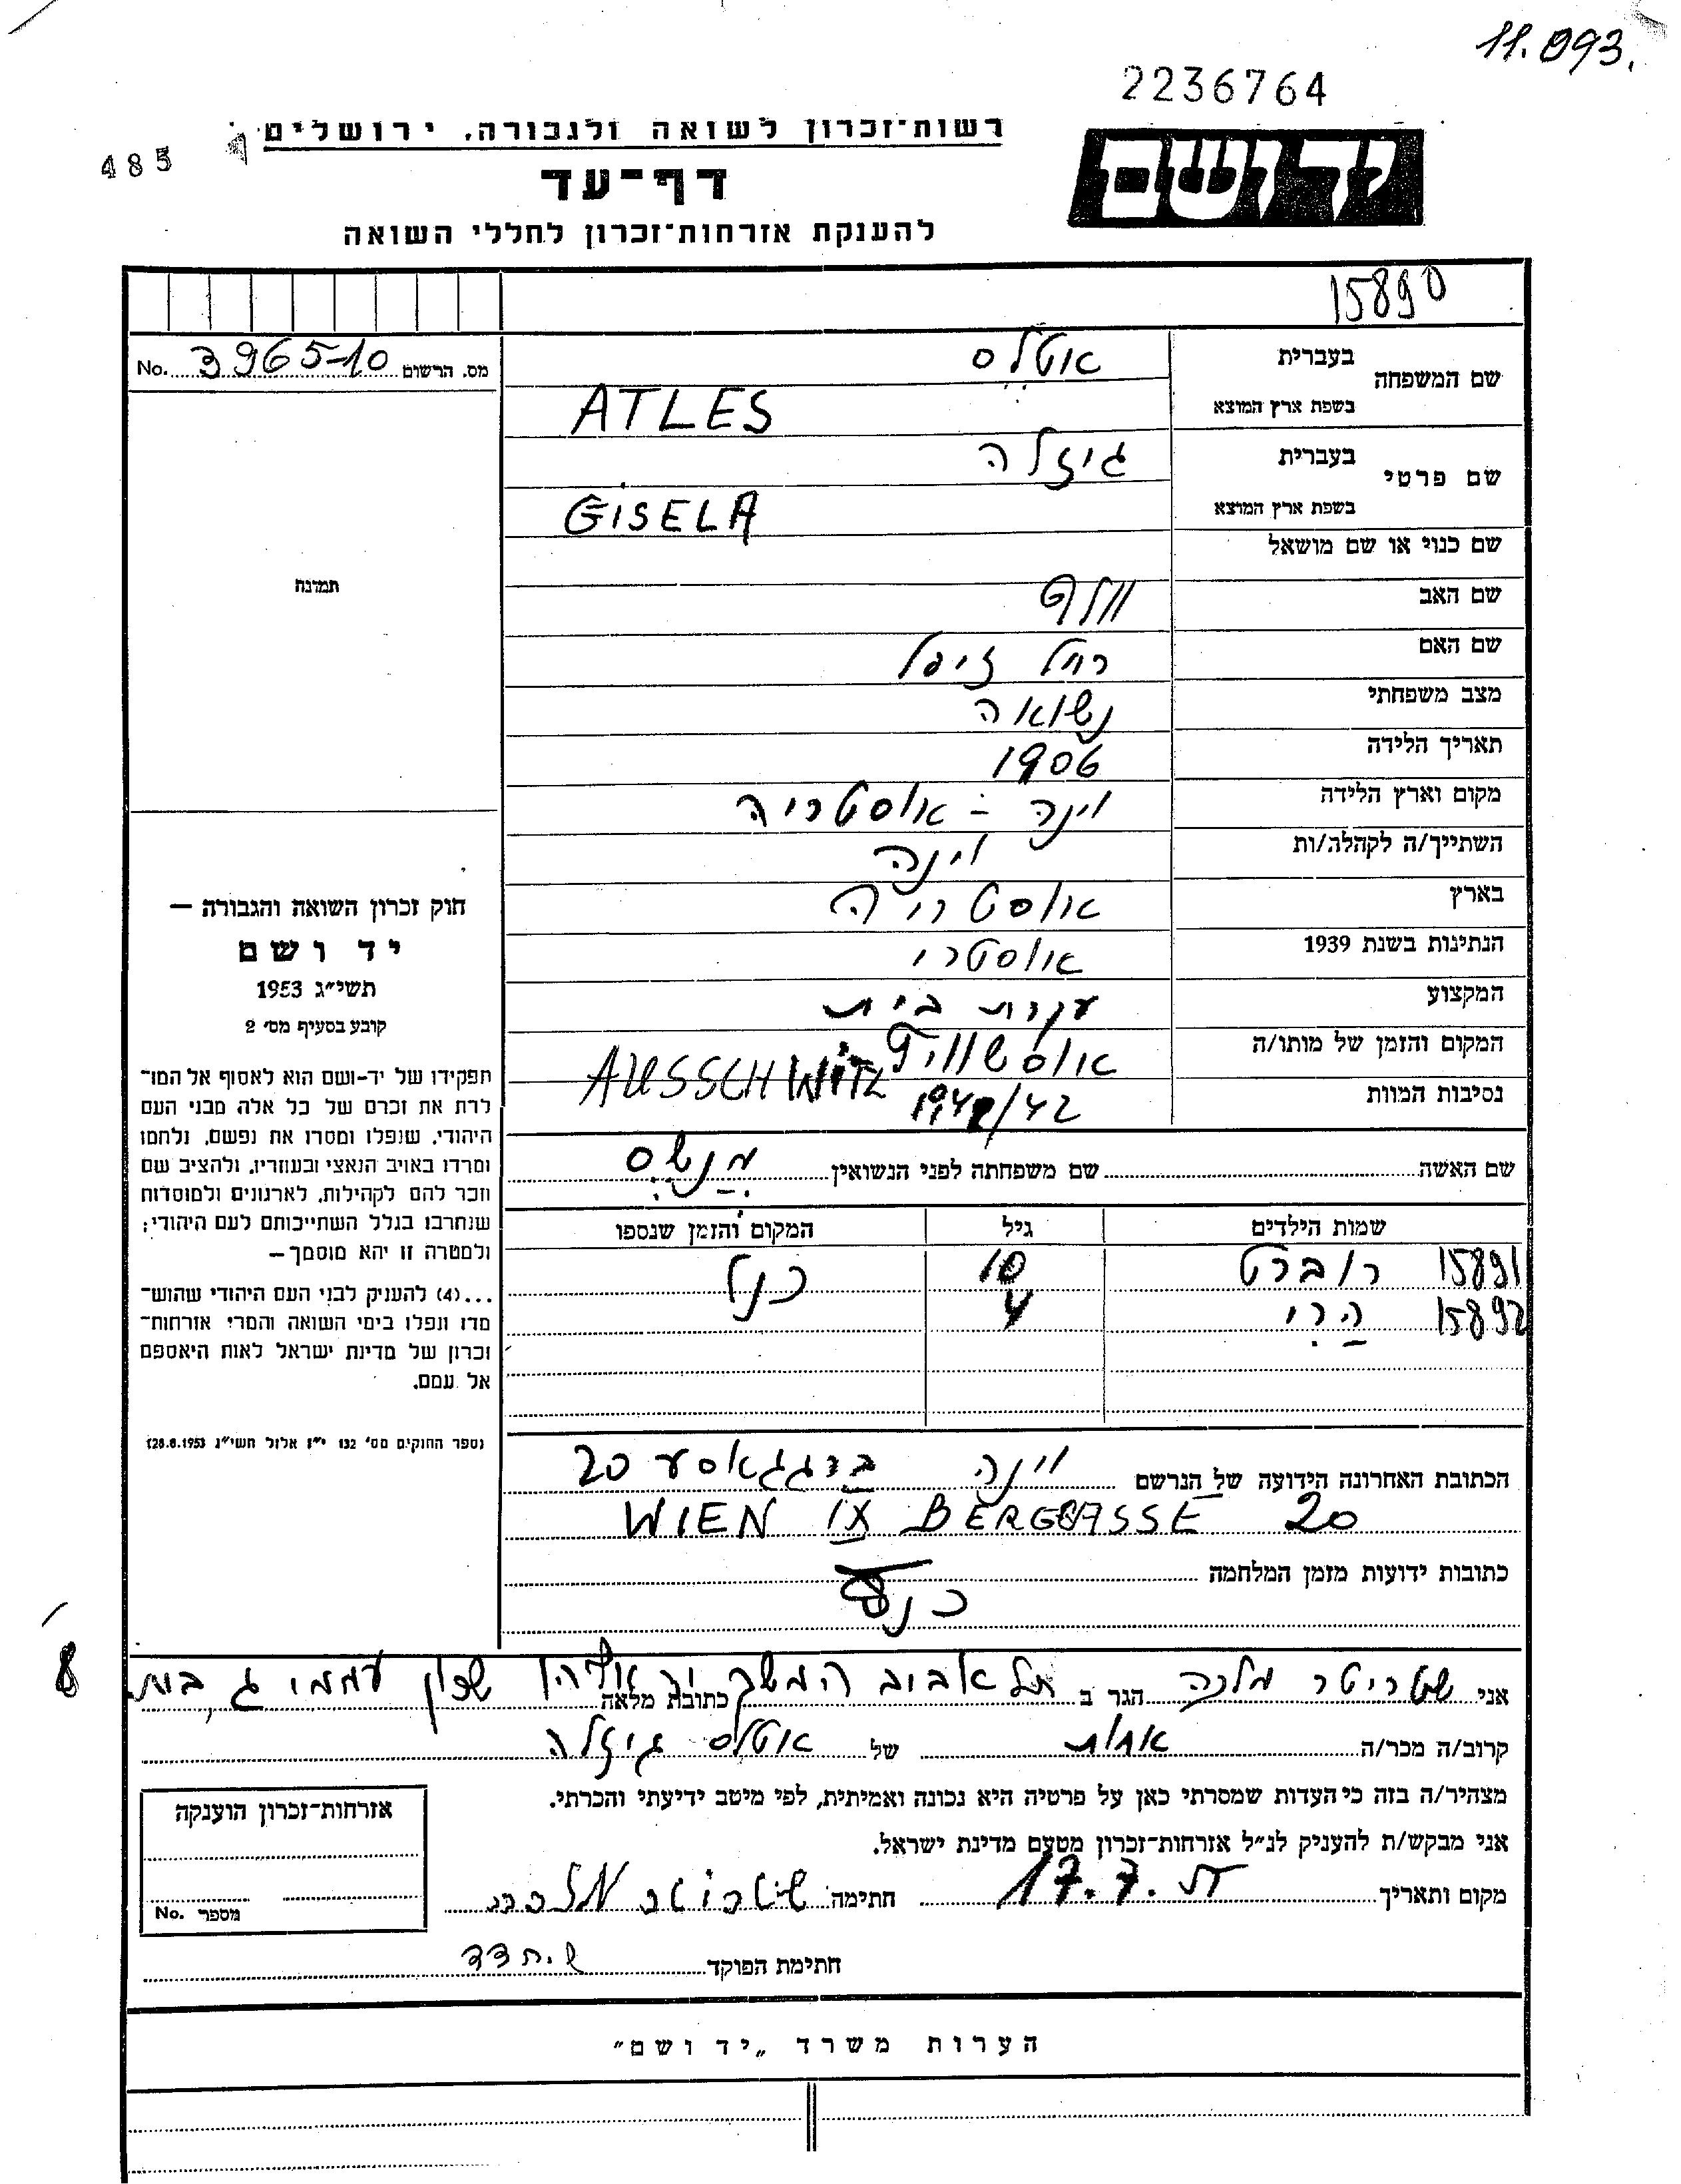 11.093.
2236764
485
יד ושם
רשות־זכרון לשואה ולגבורה, ירושלים
דף־עד
להענקת אזרחות־זכרון לחללי השואה
15890
מס. הרשום 3965-10 No.
שם המשפחה בעברית אטלס
בשפת ארץ המוצא ATLES
שם פרטי בעברית גיזלה
בשפת ארץ המוצא GISELA
שם כנוי או שם מושאל
שם האב וולף
שם האם רחל זיסל
מצב משפחתי נשואה
תאריך הלידה 1906
מקום וארץ הלידה וינה - אוסטריה
השתייך/ה לקהלה/ות וינה
בארץ אוסטריה
הנתינות בשנת 1939 אוסטרי
המקצוע עקרת בית
המקום והזמן של מותו/ה אוסשוויץ AUSSCHWITZ
נסיבות המוות /42
שם האשה שם משפחתה לפני הנשואין מנשס
שמות הילדים גיל המקום והזמן שנספו
15891 רוברט 10 כנל
15892 הרי 4
תמונה
חוק זכרון השואה והגבורה —
יד ושם
תשי״ג 1953
קובע בסעיף מס׳ 2
תפקידו של יד-ושם הוא לאסוף אל המו־
לדת את זכרם של כל אלה מבני העם
היהודי, שנפלו ומסרו את נפשם, נלחמו
ומרדו באויב הנאצי ובעוזריו, ולהציב שם
וזכר להם לקהילות, לארגונים ולמוסדות
שנחרבו בגלל השתייכותם לעם היהודי;
ולמטרה זו יהא מוסמך —
...(4) להעניק לבני העם היהודי שהוש־
מדו ונפלו בימי השואה והמרי אזרחות־
זכרון של מדינת ישראל לאות היאספם
אל עמם.
(ספר החוקים מס׳ 132 י״ז אלול תשי״ג 28.8.1953)
הכתובת האחרונה הידועה של הנרשם וינה ברגגאסע 20
WIEN IX BERGGASSE 20
כתובות ידועות מזמן המלחמה
אני שטריטר מלכה הגר ב תל אביב כתובת מלאה המשך שכון עממי ג, בית 8
קרוב/ה מכר/ה אחות של אטלס גיזלה
מצהיר/ה בזה כי העדות שמסרתי כאן על פרטיה היא נכונה ואמיתית, לפי מיטב ידיעתי והכרתי.
אני מבקש/ת להעניק לנ״ל אזרחות־זכרון מטעם מדינת ישראל.
מקום ותאריך 17.7. חתימה שטריטר מלכה
חתימת הפוקד ש. חדד
אזרחות־זכרון הוענקה
מספר No.
הערות משרד „יד ושם״